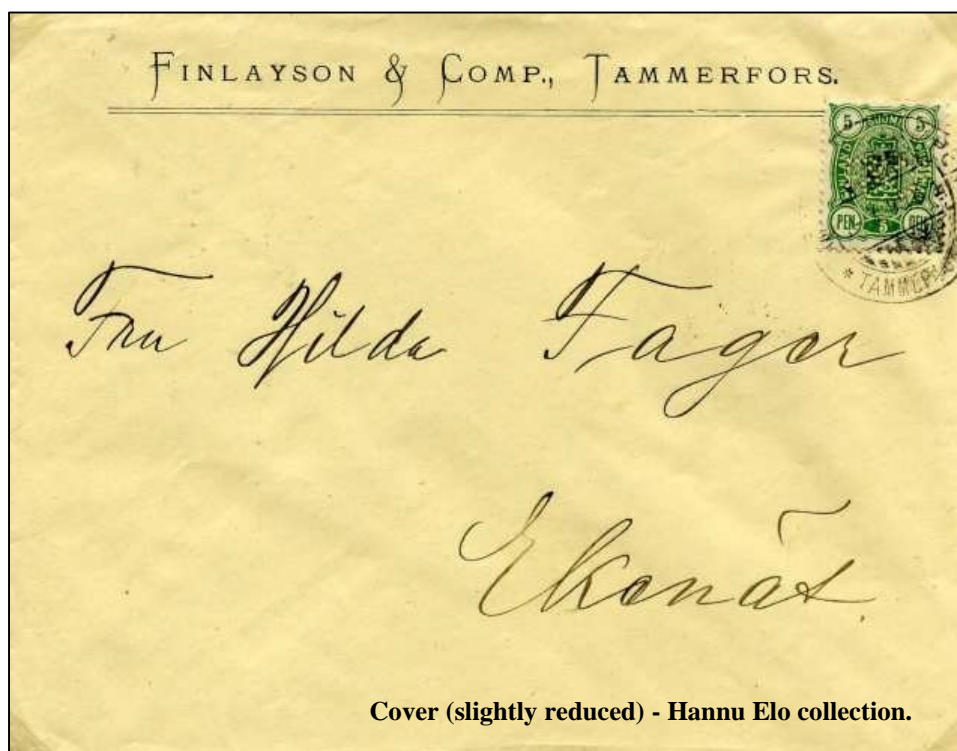 FINLAYSON & COMP., TAMMERFORS.
5 5
PEN PEN
5
* TAMMER
Fru Hilda Fager
Ekenäs.
Cover (slightly reduced) - Hannu Elo collection.